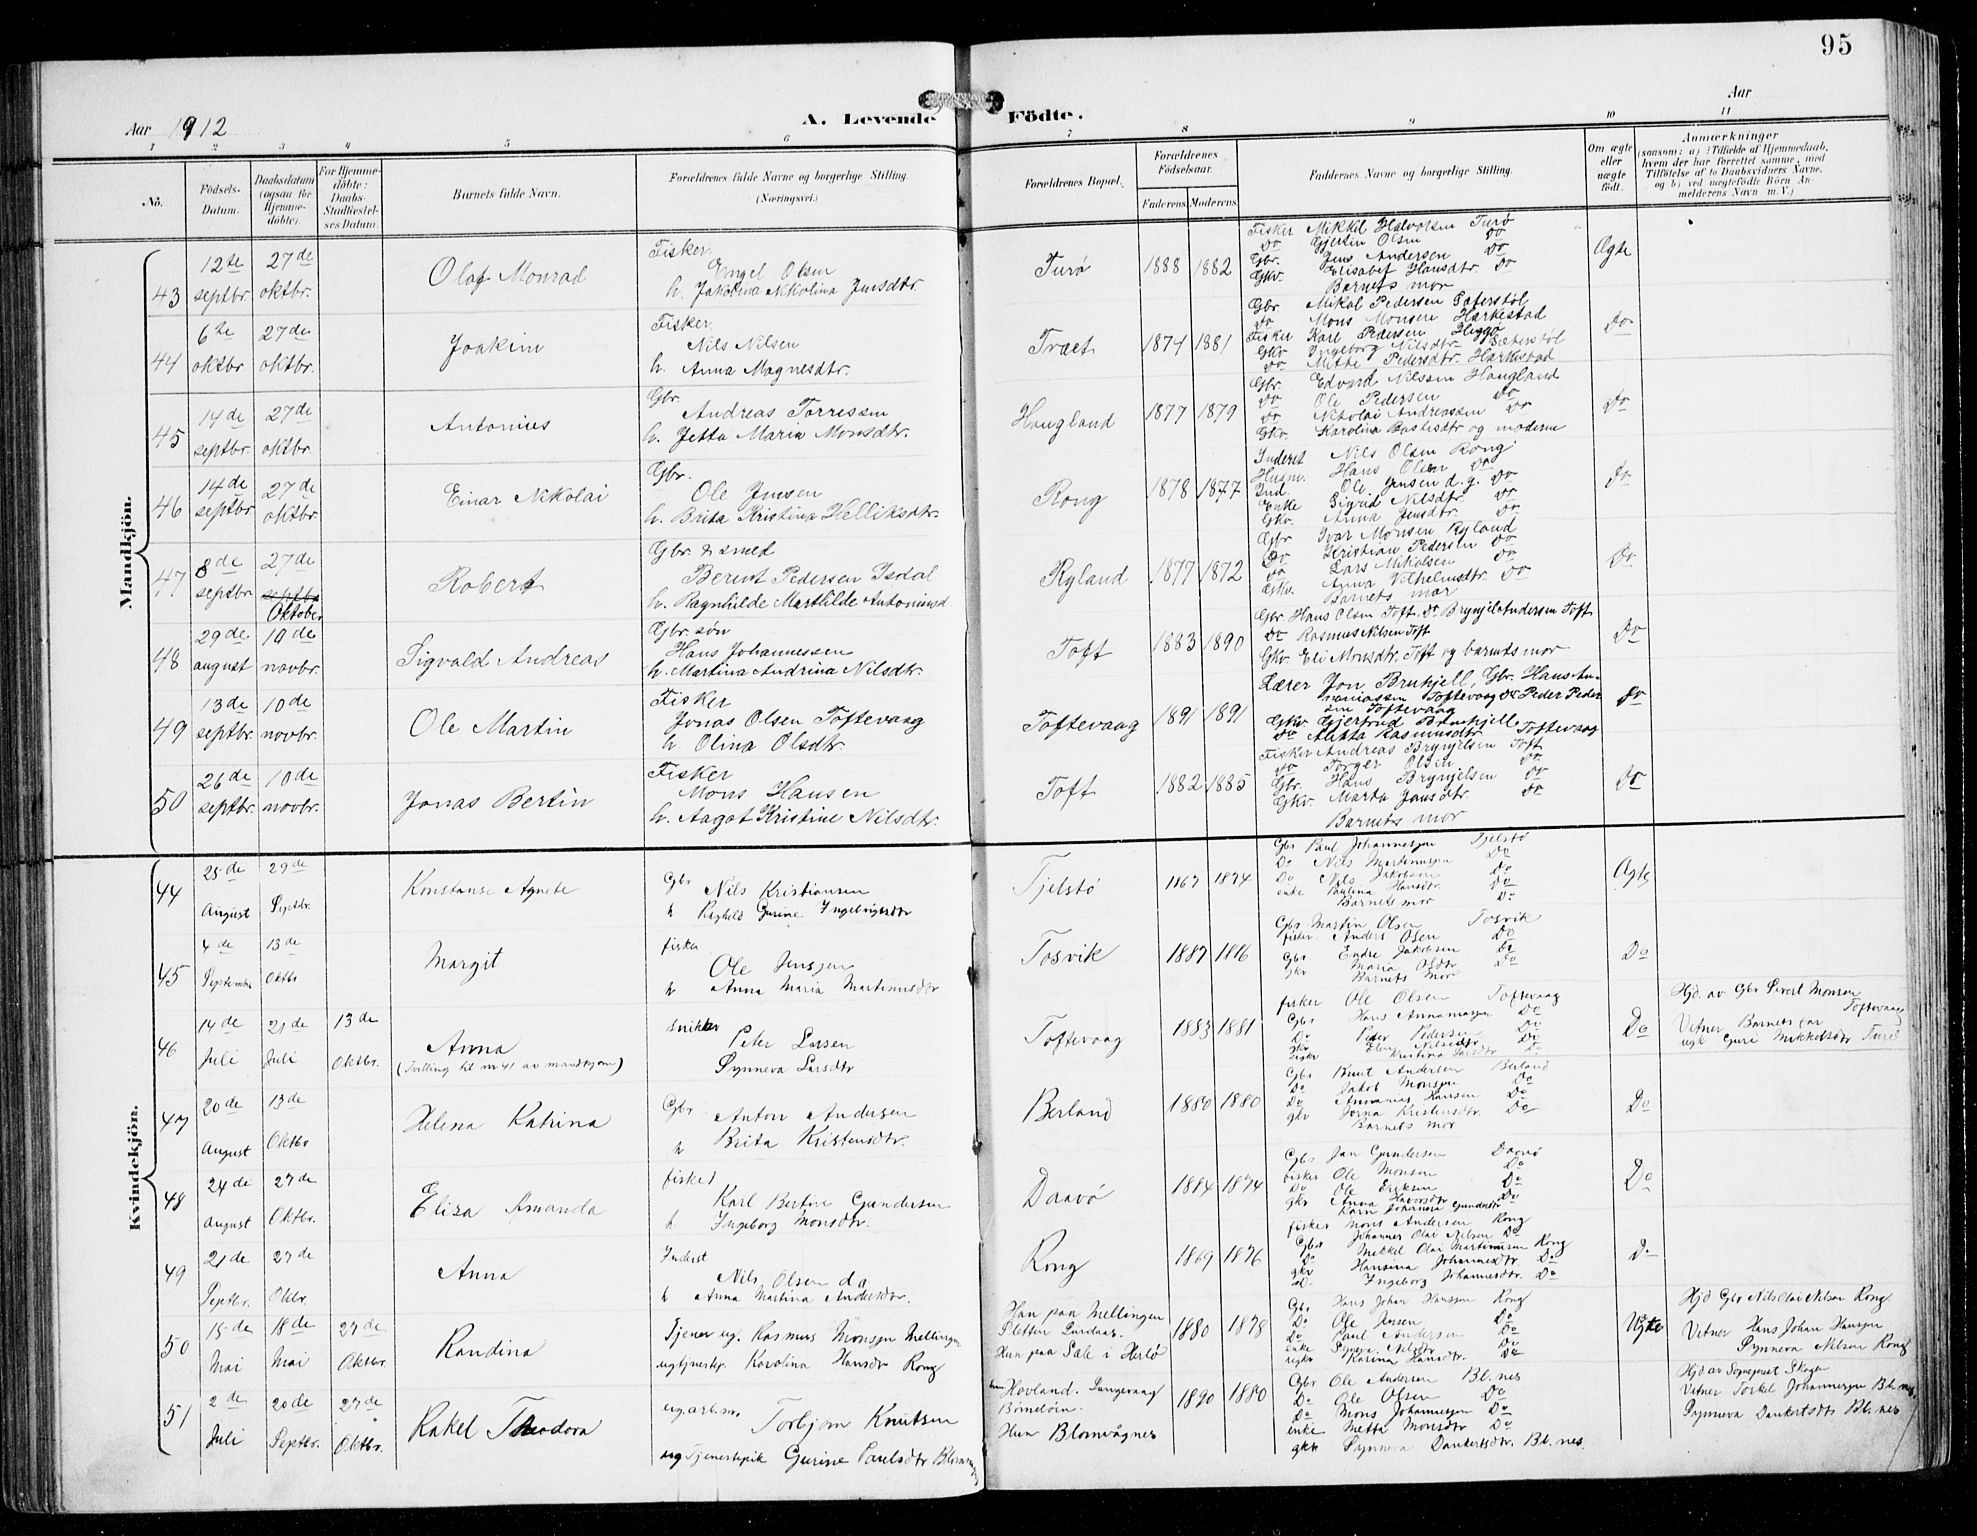 95
Aar 1912
A. Levende Födte.
Aar
1 2 3 4 5 6 7 8 9 10 11
No.
Födsels-Datum.
Daabsdatum (ogsaa for Hjemmedöbte).
For Hjemmedöbte: Daabs-Stadfæstelses Datum.
Barnets fulde Navn.
Forældrenes fulde Navne og borgerlige Stilling. (Næringsvei.)
Forældrenes Bopæl.
Forældrenes Födselsaar.
Faderens. Moderens.
Faddernes Navne og borgerlige Stilling.
Om ægte eller uægte födt.
Anmærkninger
(saasom: a) i Tilfælde af Hjemmedaab, hvem der har forrettet samme, med Tilföielse af to Daabsvidners Navne, og b) ved uægtefödte Börn Anmelderens Navn m. V.)
Mandkjön.
43 12te septbr. 27de oktbr. Olaf Monrad
Fisker Engel Olsen
h. Jakobina Nikolina Jensdtr
Turø 1888 1882
Fisker Mikkel Halvorsen Turø
Do Gjertin Olsen Do
Gbr. Jens Andersen Do
Gkv. Elisabet Hansdtr. Do
Barnets mor
Ægte
44 6te oktbr 27de oktbr. Joakim
Fisker Nils Nilsen
h. Anna Magnesdtr.
Træet 1874 1881
Gbr Mikal Pedersen Sæterstøl
Do Mons Monsen Harkestad
Fisker Karl Pedersen Heggø
Gkv Ingeborg Nilsdtr Sæterstøl
Do Mette Pedersdtr. Harkestad
Do
45 14de septbr. 27de oktbr. Antonius
Gbr. Andreas Torressen
h. Jetta Maria Monsdtr.
Haugland 1877 1879
Gbr. Edvard Nilssen Haugland
Do Ole Pedersen Do
Do Nikolai Andreassen Do
Gkv. Karolina Bastisdtr og moderen
Do
46 14de septbr. 27de oktbr. Einar Nikolai
Gbr. Ole Jensen
h. Brita Kristina Helliksdtr.
Rong 1878 1877
Inderst Nils Olsen Rong
Husm. Hans Olsen Do
Ind. Ole Jensen d. y. Do
Enke Sigrid Nilsdtr Do
Gkv. Anna Jensdtr. Do
Do
47 8de septbr 27de septbr Oktober Robert
Gbr & smed
Berent Pedersen Isdal
h. Ragnhilde Marthilde Antonisd
Ryland 1877 1872
Gbr Ivar Monsen Ryland
Do Kristian Pedersen Do
Do Lars Mikalsen Do
Gkv. Anna Vilhelmsdtr. Do
Barnets mor
Do
48 29de august 10de novbr. Sigvald Andreas
Gbr. søn
Hans Johannessen
h. Martina Andrina Nilsdtr.
Toft 1883 1890
Gbr. Hans Olsen Toft. Do Brynjel Andersen Toft
Do Rasmus Nilsen Toft
Gkv Eli Monsdtr. Toft og barnets mor
Do
49 13de septbr. 10de novbr. Ole Martin
Fisker
Jonas Olsen Toftevaag
h. Olina Olsdtr.
Toftevaag 1891 1891
Lærer Jon Brukjell, Gbr. Hans Annaniassen Toftevaag Do Peder Pedersen Toftevaag
Gkv Gjertrud Brukjell
Do Aletta Rasmusdtr. Toftevaag
Do
50 26de septbr. 10de novbr. Jonas Bertin
Fisker
Mons Hansen
h. Aagot Kristine Nilsdtr.
Toft 1882 1885
Fisker Andreas Brynjelsen Toft
Do Torger Olsen Do
Gbr. Hans Brynjelsen Do
Gkv. Marta Jonsdtr. Do
Barnets mor
Do
Kvindekjön.
44 25de August 29de Septbr. Konstanse Agnete
Gbr Nils Kristiansen
h Raghild Gurine Ingebrigtsdtr
Tjelstø 1867 1874
Gbr Paul Johannesen Tjelstø
Do Nils Martinusen Do
Do Nils Jakobsen Do
enke Paulina Hansdtr. Do
Barnets mor Do
Ægte
45 4de September 13de Oktbr Margit
fisker
Ole Jensen
h Anna Maria Martinusdtr
Tosvik 1887 1886
Gbr Martin Olsen Tosvik
fisker Anders Olsen Do
Gbr Endre Jakobsen Do
gkv Maria Olsdtr Do
Barnets Mor
Do
46 14de Juli 21de Juli 13de Oktbr. Anna
(Tvilling til nr 41 av mandkjøn)
snikker
Peter Larsen
Synneva Larsdtr
Toftevaag 1883 1881
fisker Ole Olsen Toftevaag
Gbr Hans Annaniasen Do
Do Peder Pedersen Do
gkv Elen Nilsdtr Do
ugkv Kristina Larsdtr Do
Do
Hjd. av Gbr Sivert Monsen Toftevaag
Vitner Barnets far
ugk Guri Mikkelsdtr Turø
47 20de August 13de Oktbr Helena Katrina
Gbr Anton Andersen
h Brita Kristensdtr.
Berland 1880 1880
Gbr Knut Andersen Berland
Do Jakob Monsen Do
Do Annanias Hansen Do
gkv Jorna Kristensdtr. Do
Barnets mor
Do
48 24de August 27de Oktbr. Elisa Amanda
fisker
Karl Bertin Gundersen
h Ingeborg Monsdtr.
Daavø 1884 1874
Gbr Jan Gundersen Daavø
fisker Ole Monsen Do
Do Ole Eriksen Do
gkv Anna Havorsdtr Do
Karn Johanna Gundersdtr
Do
49 21de Septbr. 27de Oktbr. Anna
Inderst
Nils Olsen d.a.
h Anna Martina Andersdtr.
Rong 1869 1876
fisker Mons Andersen Rong
Gbr Johannes Olai Nilsen Do
Do Mikkel Olai Martinusen Rong
gkv Hansina Johannesdtr. Do
Do Ingeborg Johannesdtr. Do
Do
50 15de Mai 18de Mai 27de Oktbr. Randina
Tjener ug. Rasmus Monsen Mellingen
ug tjenestep. Karolina Hansdtr Rong
Han paa Mellingen
Hun paa Sale i Herlø
1880 1878
Gbr. Hans Johan Hansen Rong
Do Ole Jensen Do
Do Paul Andersen Do
enke Synneva Nilsdtr Do
ugkv Karina Hansdtr. Do
Uegte
Hjd Gbr Nils Olai Nilsen Rong
Vitner Hans Johan Hansen
Synneva Nilsen Rong
51 2de Juli 20de Septbr. 27de Oktbr. Rakel Theodora
ug. arb.m. Torbjørn Knutsen
ug Tjenestepik Gurine Paulsdtr Blomvaagnes
Hovland.
Hun Blomvågnes
1890 1880
Gbr Ole Andersen Bl.nes
Do Ole Olsen Do
Do Mons Johannesen Do
enke Metta Monsdtr Do
gkv Synneva Dankertsdtr. Bl.nes
Hjd av Sogneprest Skagen
Vitner Torkel Johannesen Bl.nes
Synneva Dankertsdtr Bl.nes